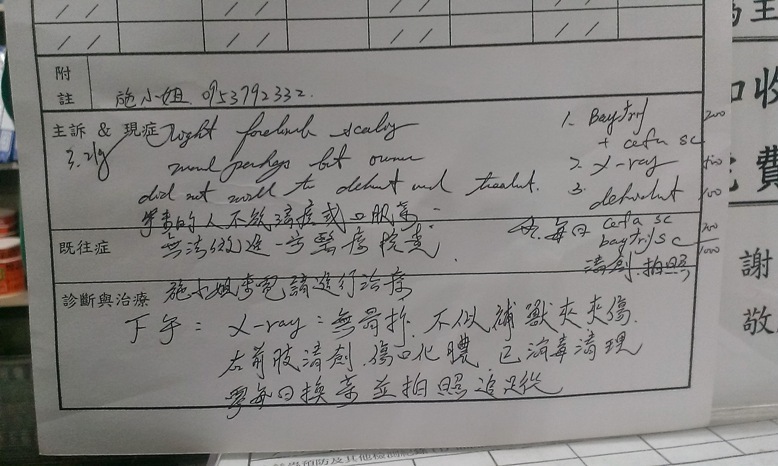 附
註
施小姐 0953792332.
主訴 & 現症
3.21g
Right forelimb scaly
wound perhaps but owner
did not to debut and treatment.
的人不敢清瘡或口服藥
無法做進一步醫療檢查
1. Baytril
+ cefa sc
200
2. X-ray
3.
100
每日 cefa sc
baytril sc
200
1000
清創.拍照
既往症
施小姐來電請進行治療
診斷與治療
下午: X-ray:無骨折.不似捕獸夾夾傷.
右前肢清創.傷口化膿.已消毒清理
需每日換藥並拍照追蹤
收
費
謝
敬